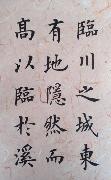 臨川之城東
有地隱然而
高以臨於溪